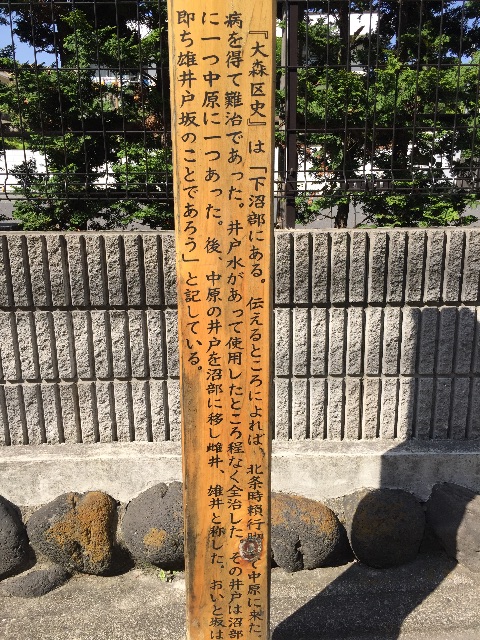 『大森区史』は「下沼部にある。伝えるところによれば、北条時頼行脚して中原に来た、
病を得て難治であった。井戸水があって使用したところ程なく全治した。その井戸は沼部
に一つ中原に一つあった。後、中原の井戸を沼部に移し雌井、雄井と称した。おいと坂は
即ち雄井戸坂のことであろう」と記している。